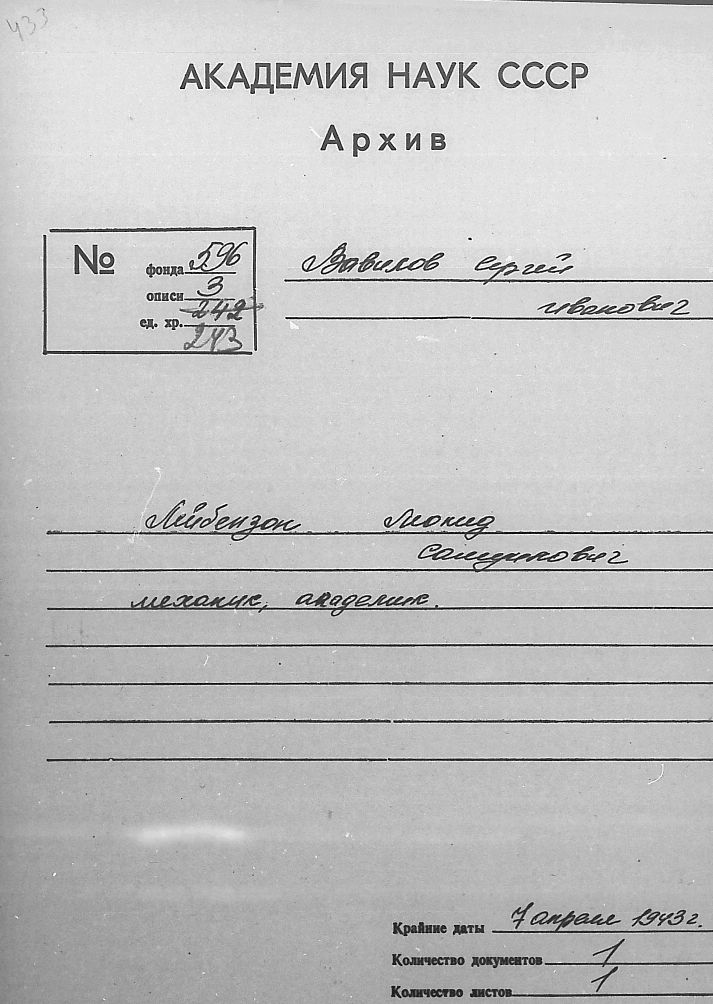 433
АКАДЕМИЯ НАУК СССР
Архив
№
фонда 596
описи 3
242
ед. хр. 243
Вавилов Сергей
Иванович
Лейбензон Леонид
Самуилович
механик, академик.
Крайние даты 7 апреля 1943 г.
Количество документов 1
Количество листов 1